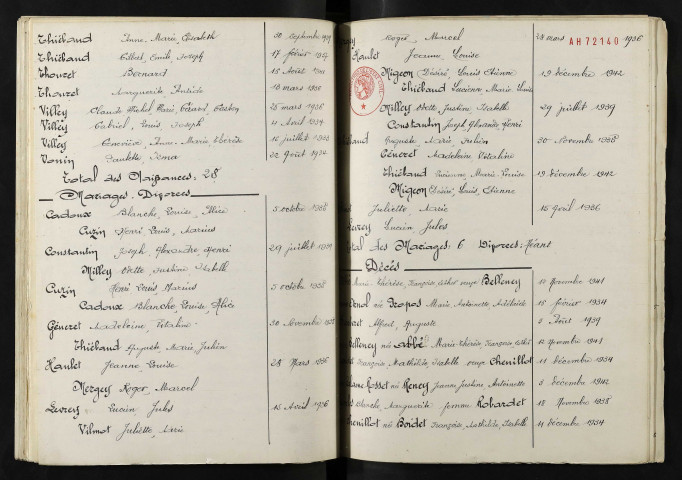 Thiébaud Anne, Marie, Elisabeth 30 Septembre 1939
Thiébaud Gilbert, Emile, Joseph 17 février 1937
Thouzet Bernard 15 Août
Thouzet Marguerite 10 mars 1938
Villey Claude Michel, Marie, Gérard, Gaston 25 mars 1936
Villey Gabriel, Louis Joseph 4 Avril 1934
Villey Geneviève, Anne, Marie, Thérèse 16 juillet 1938
Vonin Paulette, Irma 22 Août 1934
Total des Naissances: 28
Mariages, Divorces
Cadoux Blanche, Louise, Alice 3 octobre 1938
Cuzin Henri, Louis, Marius
Constantin Joseph, Alexandre Henri 29 juillet 1939
Milley Odette Justine Isabelle
Cuzin Henri Louis Marius 3 octobre 1938
Cadoux Blanche, Louise, Alice
Géneret Madeleine, Vitaline 30 Novembre 1938
Thiébaud Auguste, Marie, Julien
Haulet Jeanne, Louise 28 Mars 1936
Mergey Roger, Marcel
Levrey Lucien, Jules 15 Avril 1936
Vilmot Juliette, Marie
Roger, Marcel 28 mars 1936
AH72140
Haulet Jeanne, Louise
Migeon Désiré, Louis Etienne 19 décembre 1942
Thiébaud Lucienne Marie, Louise
Milley Odette Justine, Isabelle 29 juillet 1939
Constantin Joseph, Alexandre Henri
Auguste Marie, Julien 30 Novembre 1938
Géneret Madeleine Vitaline
Thiébaud Lucienne, Marie Louise 19 décembre 1942
Migeon Désiré, Louis, Etienne
Juliette, Marie 15 Avril 1936
Levrey Lucien, Jules
Total des Mariages: 6 Divorces: Néant
Décés
Marie-Thérèse, Françoise, Esther veuve Belleney 12 Novembre 1941
née Marie Antoinette Adélaïde 15 février 1934
Alfred, Auguste 2 Août 1939
Belleney née Abbé Marie-Thérèse, Françoise, Esther 12 Novembre 1941
Françoise Mathilde, Isabelle veuve Chenillot 11 décembre 1934
née Jeanne Justine, Antoinette 5 décembre 1942
Blanche, Marguerite femme Robardet 18 Novembre 1938
Chenillot née Boidet Françoise, Mathilde, Isabelle 11 décembre 1934